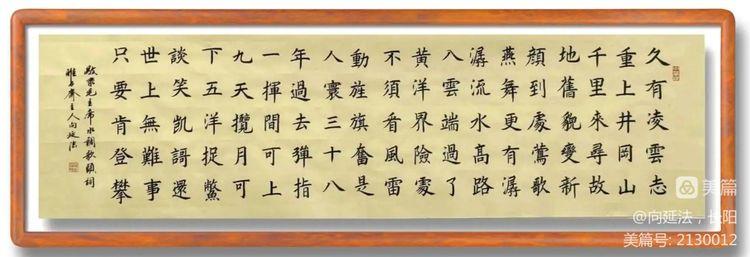 久有凌雲志
重上井岡山
千里來尋故
地舊貌變新
顏到處鶯歌
燕舞更有潺
潺流水高路
入雲端過了
黃洋界險處
不須看風雷
動旌旗奮是
人寰三十八
年過去彈指
一揮間可上
九天攬月可
下五洋捉鱉
談笑凱謌還
世上無難事
只要肯登攀
敬录毛主席水調歌頭詞
齋主人向延法
美篇
@向延法，长阳
美篇号: 2130012